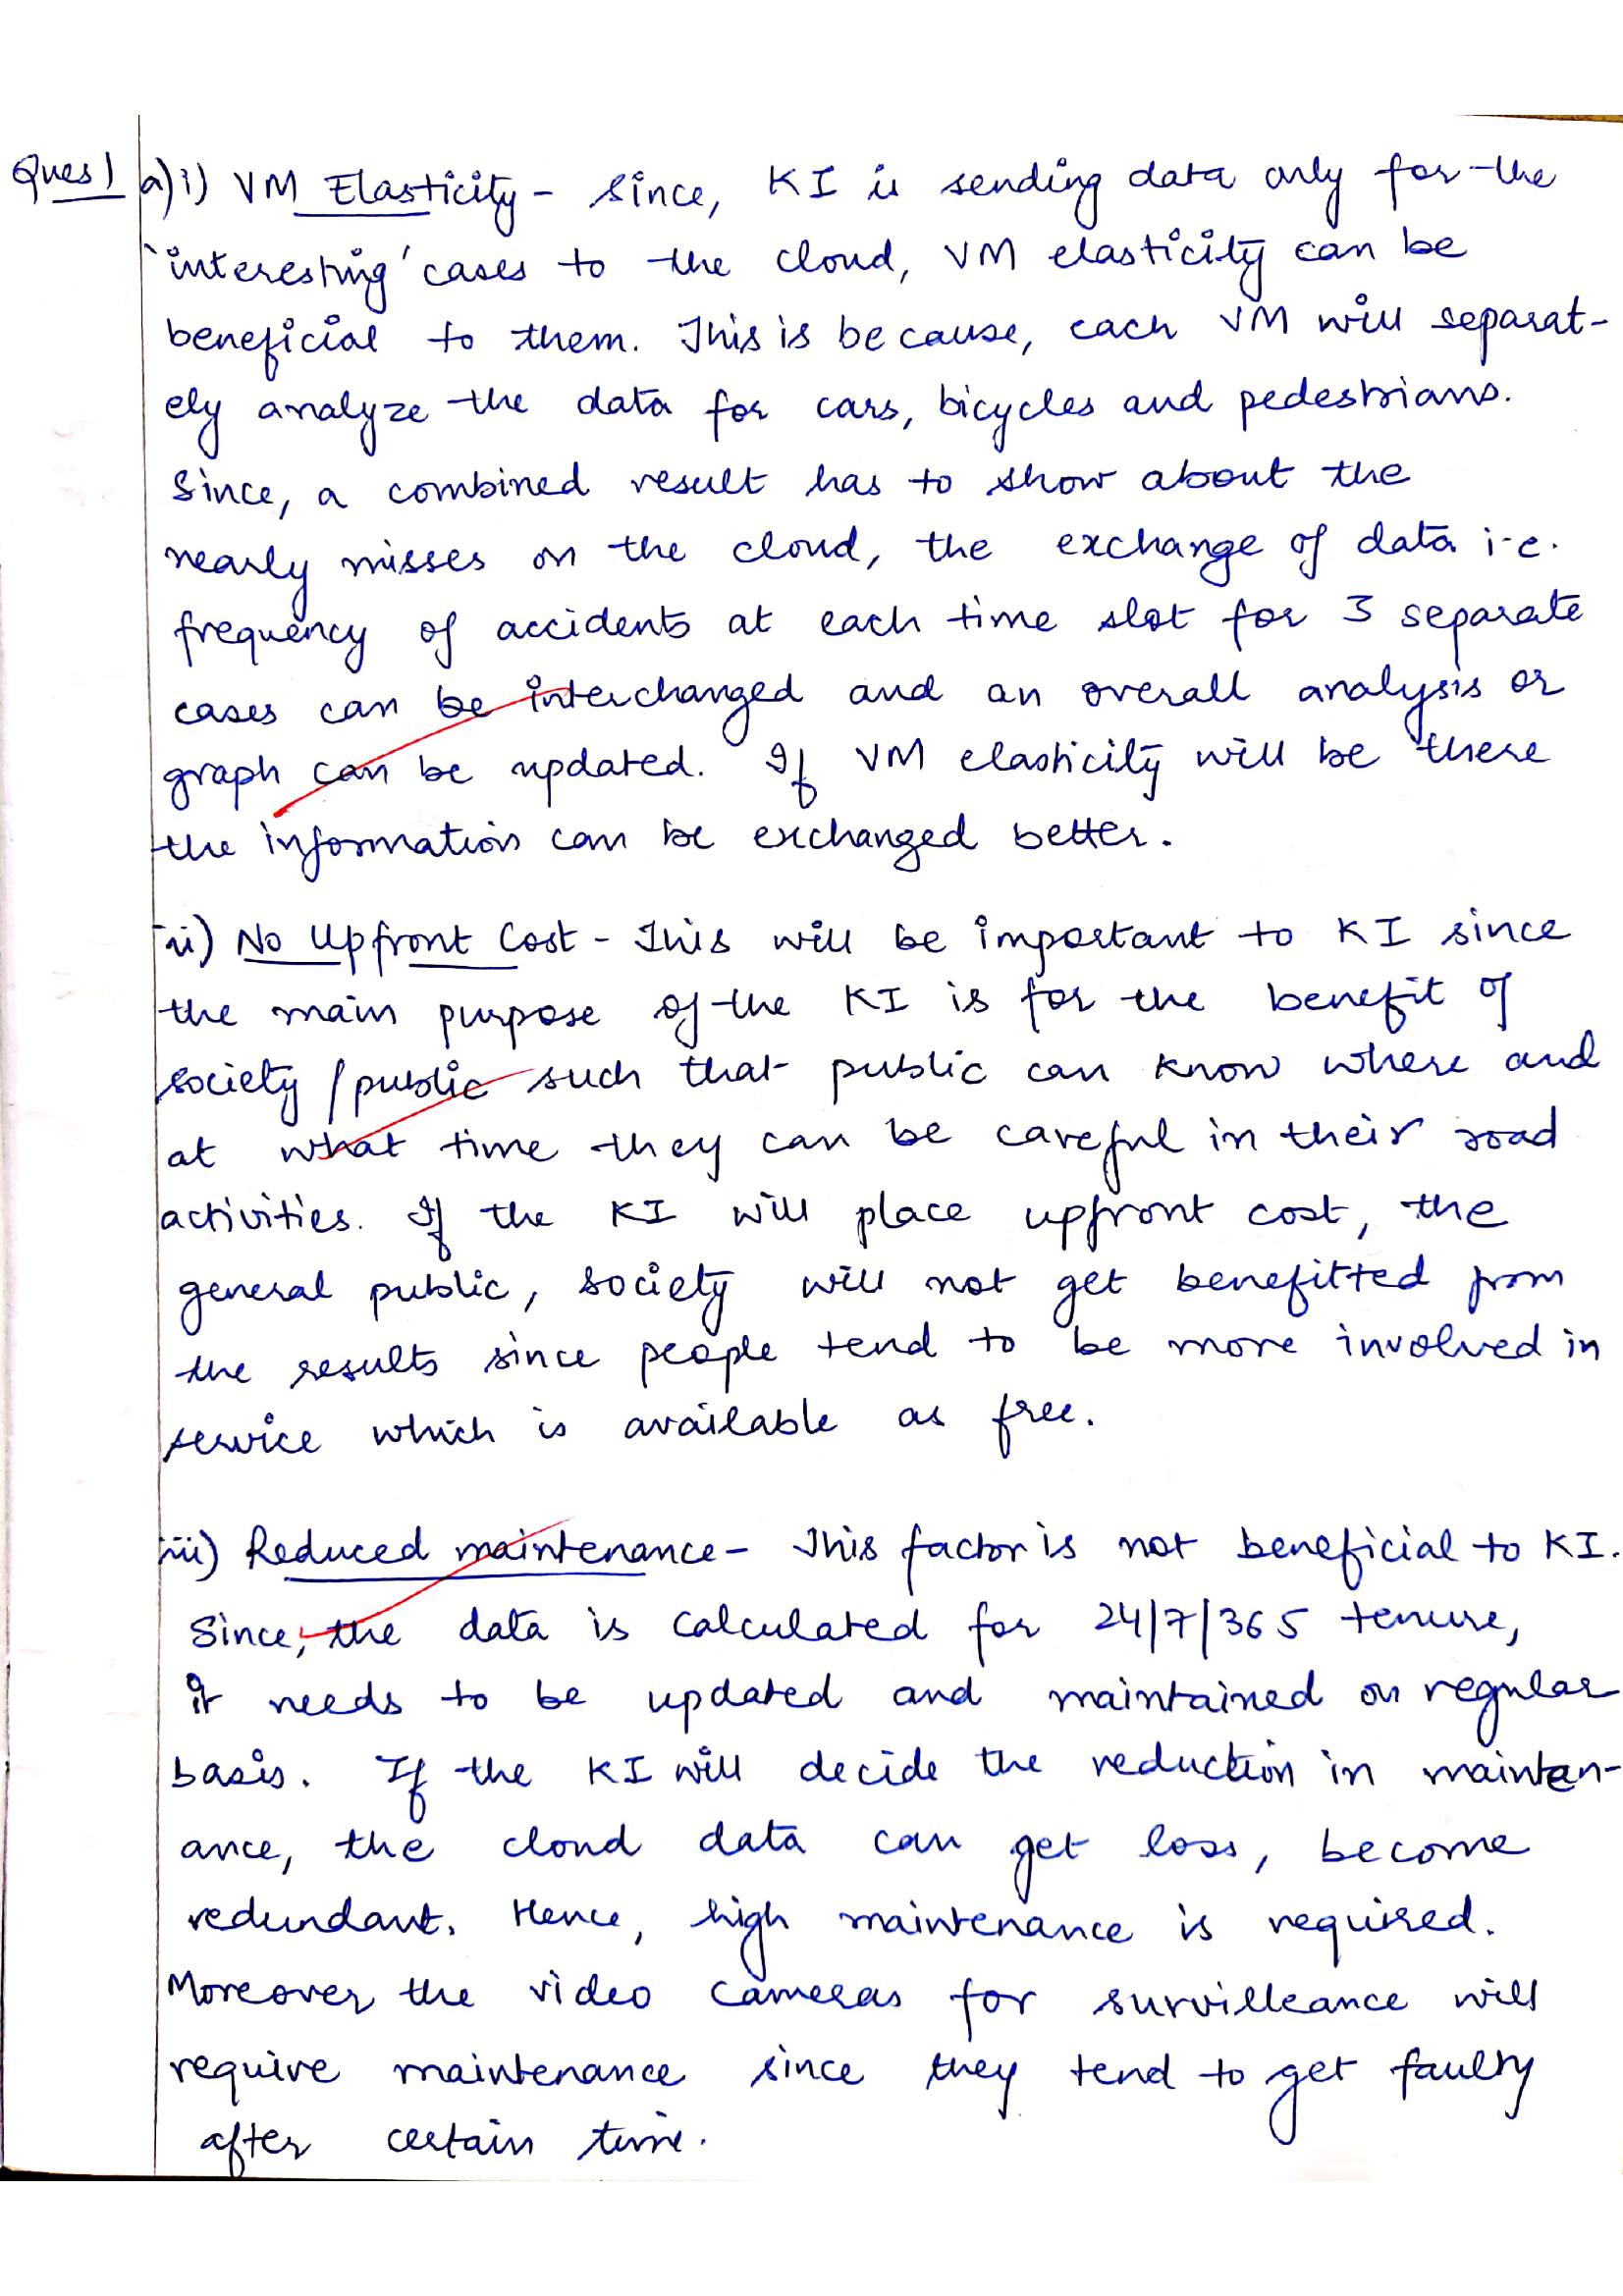 Ques 1 a) i) VM Elasticity - Since, KI is sending data only for the
'interesting' cases to the cloud, VM elasticity can be
beneficial to them. This is because, each VM will separat-
ely analyze the data for cars, bicycles and pedestrians.
Since, a combined result has to show about the
nearly misses on the cloud, the exchange of data i.e.
frequency of accidents at each time slot for 3 separate
cases can be interchanged and an overall analysis or
graph can be updated. If VM elasticity will be there
the information can be exchanged better.
ii) No Upfront Cost - This will be important to KI since
the main purpose of the KI is for the benefit of
society / public such that public can know where and
at what time they can be careful in their road
activities. If the KI will place upfront cost, the
general public, society will not get benefitted from
the results since people tend to be more involved in
service which is available as free.
iii) Reduced maintenance - This factor is not beneficial to KI.
Since, the data is calculated for 24/7/365 tenure,
it needs to be updated and maintained on regular
basis. If the KI will decide the reduction in mainten-
ance, the cloud data can get loss, become
redundant. Hence, high maintenance is required.
Moreover the video cameras for survilleance will
require maintenance since they tend to get faulty
after certain time.